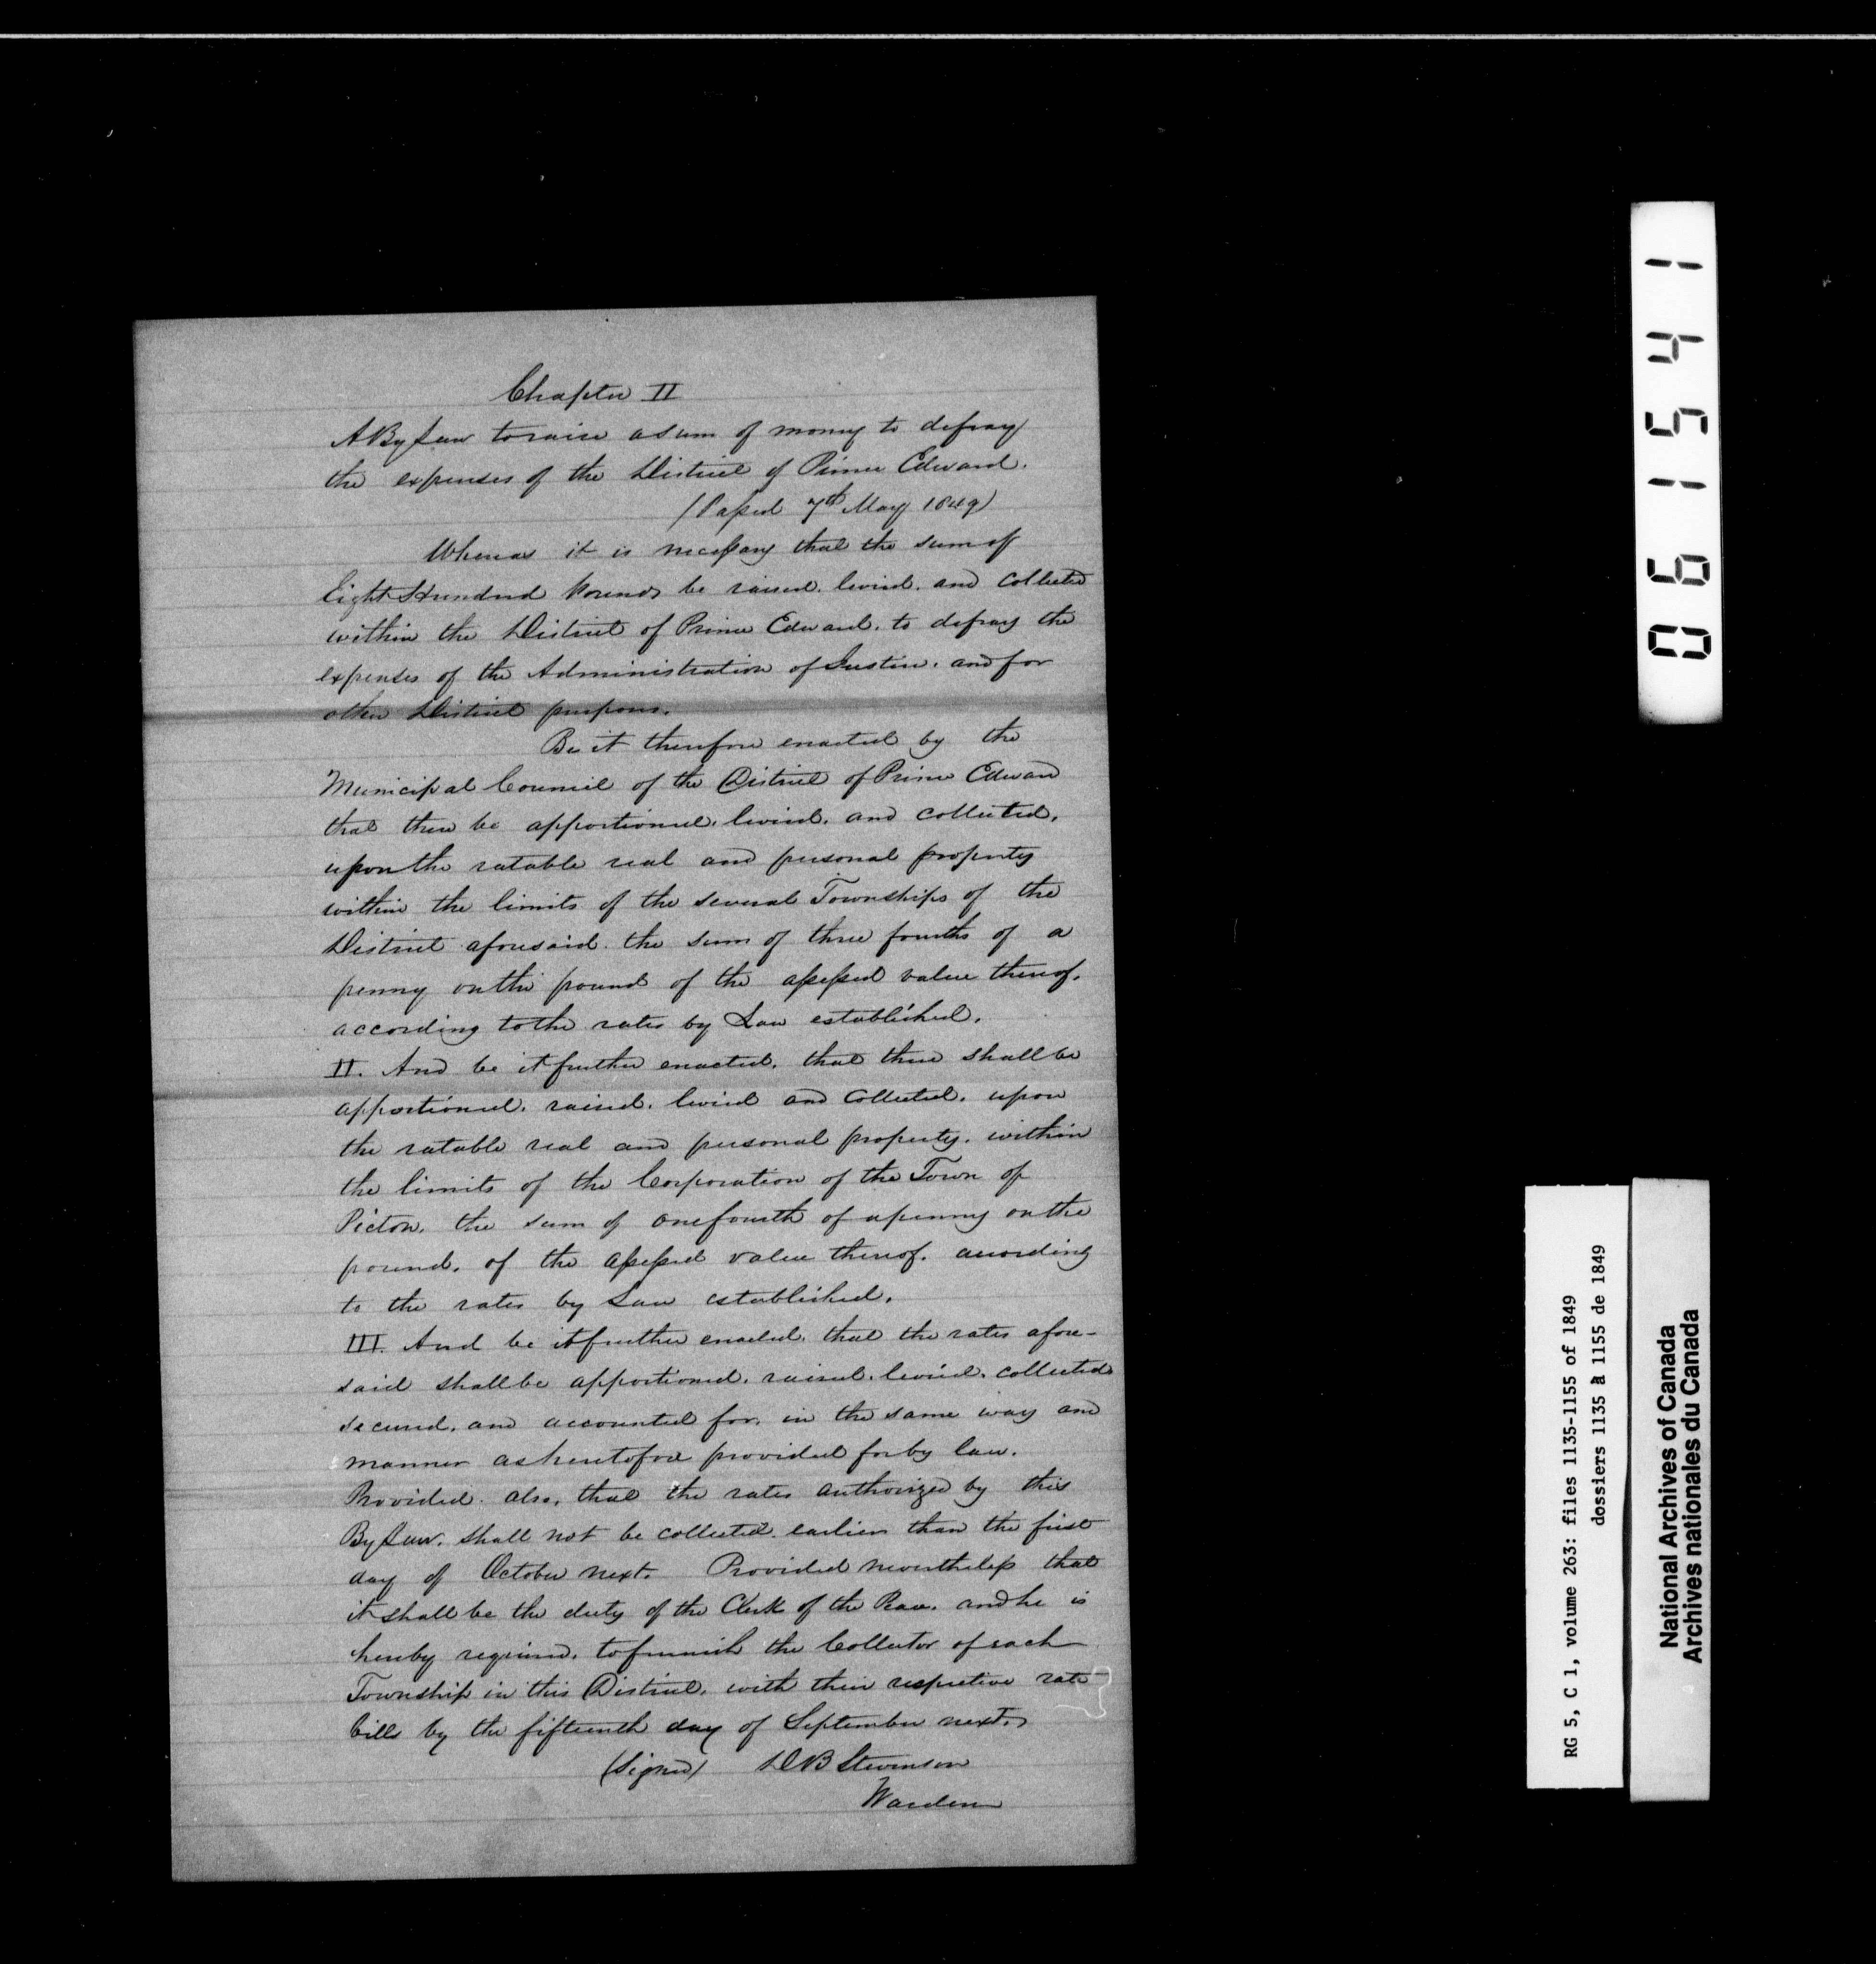 Chapter II
A By Law to raise a sum of money to defray
the expenses of the District of Prince Edward.
(Passed 7th May 1849)
Whereas it is necessary that the sum of
Eight Hundred Pounds be raised, levied, and Collected
within the District of Prince Edward, to defray the
expenses of the Administration of Justice, and for
other District purposes.
Be it therefore enacted by the
Municipal Council of the District of Prince Edward
that there be apportioned, levied, and collected,
upon the ratable real and personal property
within the limits of the several Townships of the
District aforesaid, the sum of three fourths of a
penny on the pound of the assessed value thereof,
according to the rates by Law established.
II. And be it further enacted, that there shall be
apportioned, raised, levied and Collected, upon
the ratable real and personal property, within
the limits of the Corporation of the Town of
Picton, the sum of one fourth of a penny on the
pound, of the assessed value thereof, according
to the rates by Law established.
III. And be it further enacted, that the rates afore-
said shall be apportioned, raised, levied, collected
secured, and accounted for, in the same way and
manner as heretofore provided for by law.
Provided also, that the rates authorized by this
By Law, shall not be collected earlier than the first
day of October next. Provided nevertheless that
it shall be the duty of the Clerk of the Peace, and he is
hereby required, to furnish the Collector of each
Township in this District, with their respective rate
bills by the fifteenth day of September next.
(Signed) D B Stevenson
Warden
061541
RG 5, C 1, volume 263: files 1135-1155 of 1849
dossiers 1135 à 1155 de 1849
National Archives of Canada
Archives nationales du Canada